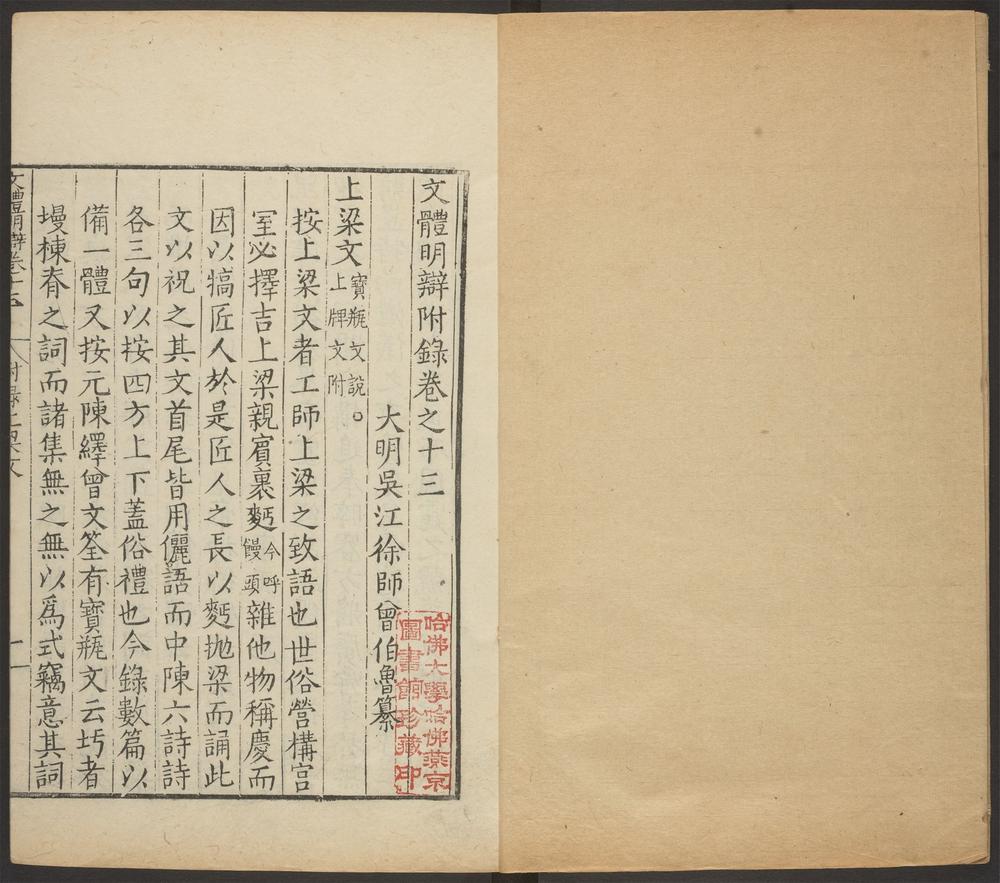 文體明辯附錄卷之十三
大明吳江徐師曾伯魯纂
哈佛大學哈佛燕京
圖書館珍藏印
上梁文寶瓶文說
上牌文附
按上梁文者工師上梁之致語也世俗營構宮
室必擇吉上梁親賓裹麪今呼
饅頭雜他物稱慶而
因以犒匠人於是匠人之長以麪拋梁而誦此
文以祝之其文首尾皆用儷語而中陳六詩詩
各三句以按四方上下蓋俗禮也今錄數篇以
備一體又按元陳繹曾文筌有寶瓶文云圬者
墁棟脊之詞而諸集無之無以爲式竊意其詞
文體明辯卷十三 附錄上梁文 一